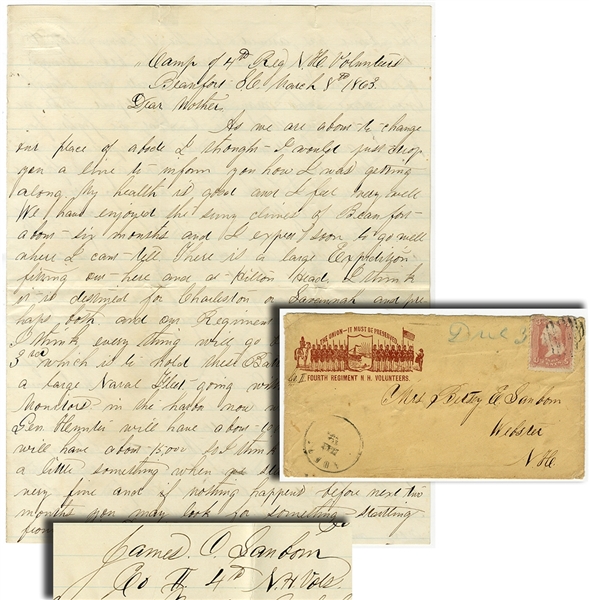 Camp of 4th Reg N H Volunteers
Beaufort SC March 8th 1863.
Dear Mother.
As we are about to change
our place of abode I thought I would just drop
you a line to inform you how I was getting
along. My health is good and I feel very well
We have enjoyed the sunny climes of Beaufort
about six months and I expect soon to go well
where I cant tell. There is a large Expedition
fitting out here and at Hilton Head. I think
it is destined for Charleston or Savannah and per
haps both. and our Regiment
I think every thing will go
3 which is to hold these Bat
a large Naval Fleet going wi
Monitors in the harbor now
Gen Hunter will have about
will have about 15,000 so I think
a little something when
very fine and if nothing happens before next two
months you may look for something startling
from
THE UNION—IT MUST BE PRESERVED
Co H.
FOURTH REGIMENT N. H. VOLUNTEERS.
Due 3
Mrs Betsy E Sanborn
Webster
N H
James O. Sanborn
Co H. 4th N. H Vols